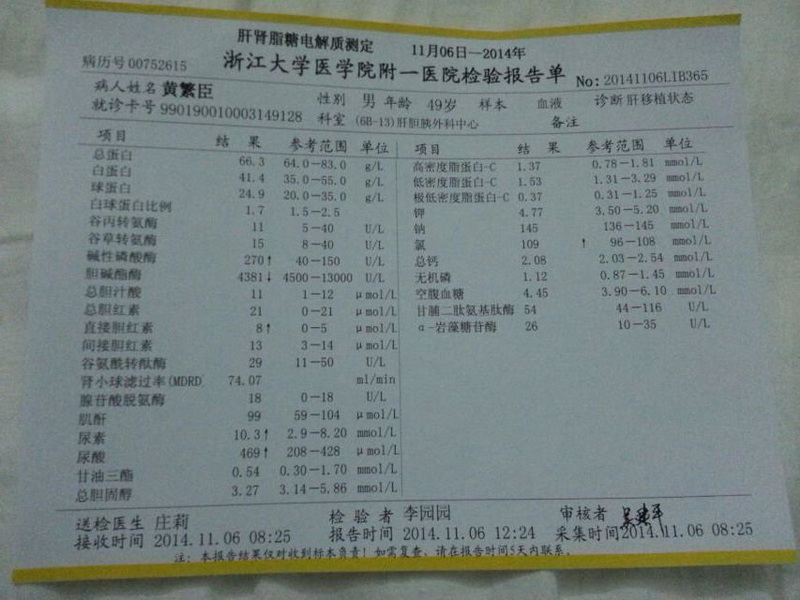 肝肾脂糖电解质测定 11月06日—2014年
病历号 00752615 浙江大学医学院附一医院检验报告单 No: 20141106LIB365
病人姓名 黄繁臣 性别 男 年龄 49岁 样本 血液 诊断 肝移植状态
就诊卡号 990190010003149128 科室 (6B-13)肝胆胰外科中心 备注
项目 结 果 参考范围 单位 项目 结 果 参考范围 单位
总蛋白 66.3 64.0—83.0 g/L 高密度脂蛋白-C 1.37 0.78—1.81 mmol/L
白蛋白 41.4 35.0—55.0 g/L 低密度脂蛋白-C 1.53 1.31—3.29 mmol/L
球蛋白 24.9 20.0—35.0 g/L 极低密度脂蛋白-C 0.37 0.31—1.25 mmol/L
白球蛋白比例 1.7 1.5—2.5 钾 4.77 3.50—5.20 mmol/L
谷丙转氨酶 11 5—40 U/L 钠 145 136—145 mmol/L
谷草转氨酶 15 8—40 U/L 氯 109 ↑ 96—108 mmol/L
碱性磷酸酶 270↑ 40—150 U/L 总钙 2.08 2.03—2.54 mmol/L
胆碱酯酶 4381↓ 4500—13000 U/L 无机磷 1.12 0.87—1.45 mmol/L
总胆汁酸 11 1—12 μmol/L 空腹血糖 4.45 3.90—6.10 mmol/L
总胆红素 21 0—21 μmol/L 甘脯二肽氨基肽酶 54 44—116 U/L
直接胆红素 8↑ 0—5 μmol/L α-岩藻糖苷酶 26 10—35 U/L
间接胆红素 13 3—14 μmol/L
谷氨酰转肽酶 29 11—50 U/L
肾小球滤过率(MDRD) 74.07 ml/min
腺苷酸脱氨酶 18 0—18 U/L
肌酐 99 59—104 μmol/L
尿素 10.3↑ 2.9—8.20 mmol/L
尿酸 469↑ 208—428 μmol/L
甘油三酯 0.54 0.30—1.70 mmol/L
总胆固醇 3.27 3.14—5.86 mmol/L
送检医生 庄莉 检 验 者 李园园 审核者
接收时间 2014.11.06 08:25 报告时间 2014.11.06 12:24 采集时间2014.11.06 08:25
注: 本报告结果仅对收到标本负责! 如需复查, 请在报告时间5天内联系。